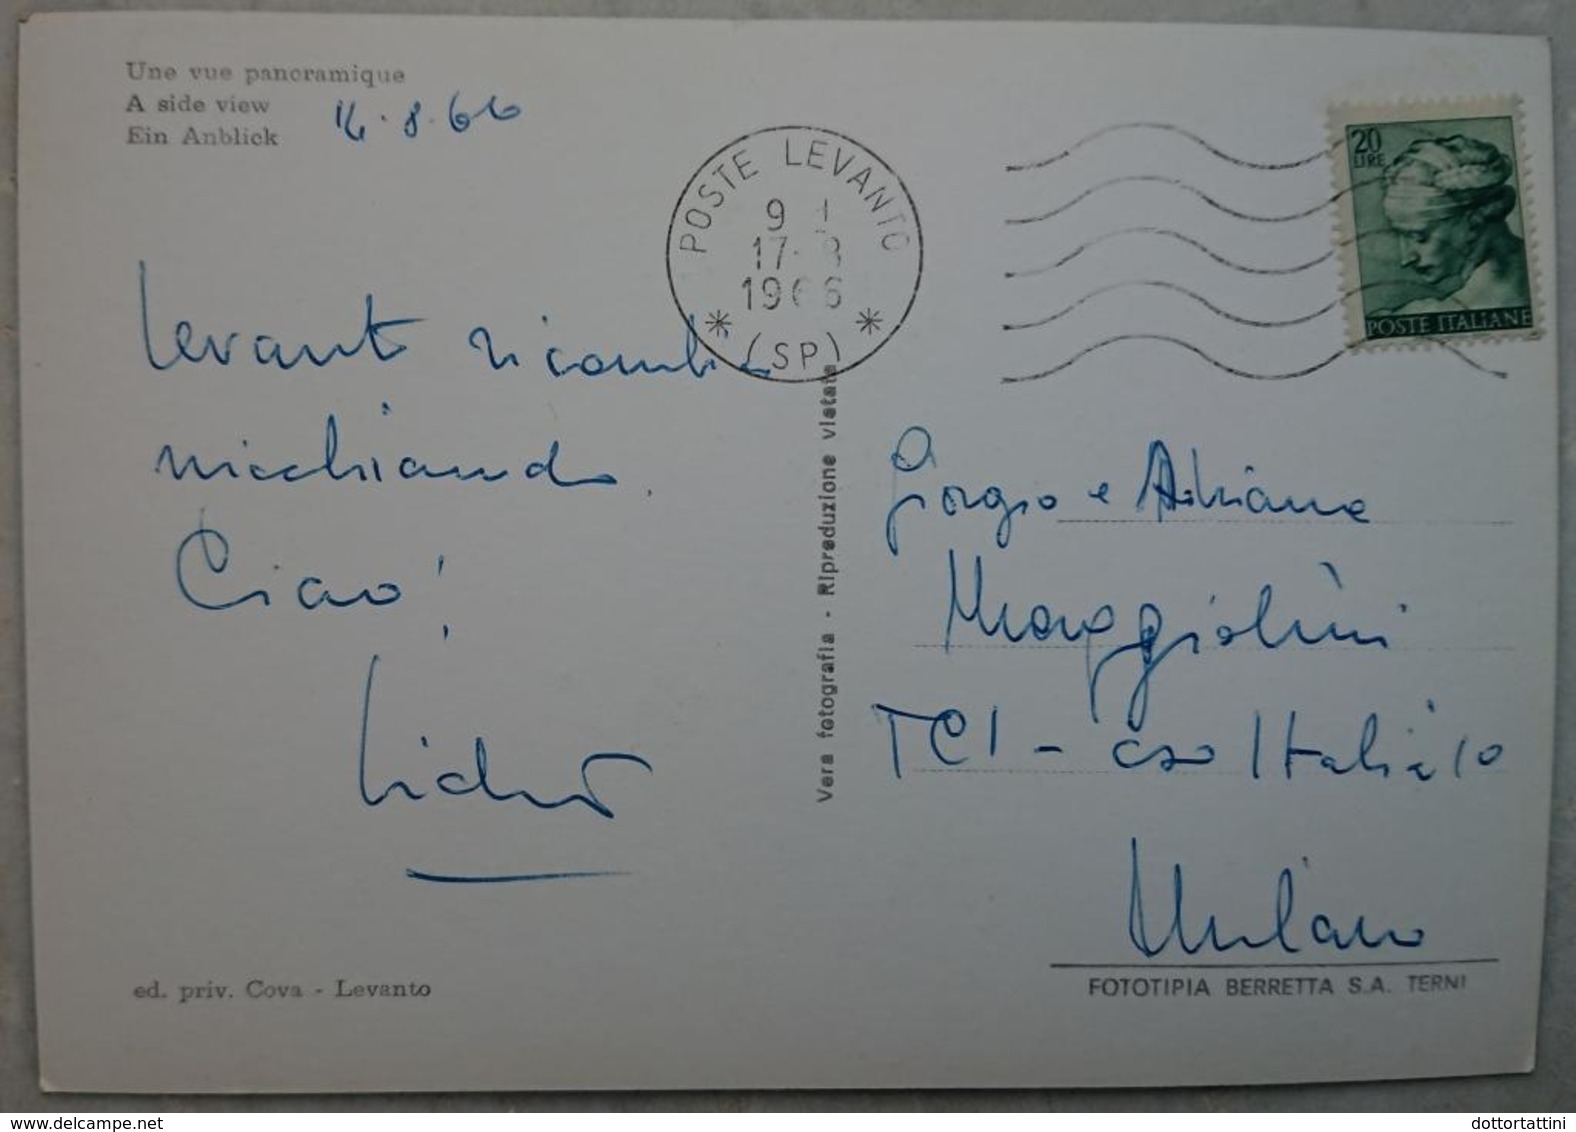 Une vue panoramique
A side view
Ein Anblick
14.8.66
POSTE LEVANTO
9
17-8
1966
(SP)
20
LIRE
POSTE ITALIANE
Levanto ricambia
nicchiando.
Ciao!
Giorgio e Adriana
Maggiolini
TCI - cso Italia 10
Milano
Vera fotografia - Riproduzione vietata
ed. priv. Cova - Levanto
FOTOTIPIA BERRETTA S.A. TERNI
dottortattini